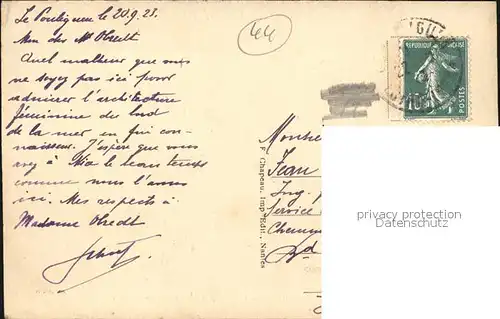 Le Pouliguen le 20.9.23.
Mon cher Mr Obredt
Quel malheur que vous
ne soyez pas ici pour
admirer l'architecture
féminine du bord
de la mer en fin con-
naisseur. J'espère que vous
avez à le beau temps
comme nous l'avons
ici. Mes respects à
Madame Obredt
44
RÉPUBLIQUE FRANÇAISE
POSTES
10
F. Chapeau, Imp.-Edit., Nantes
Jean
Ing.
Service
privacy protection
Datenschutz